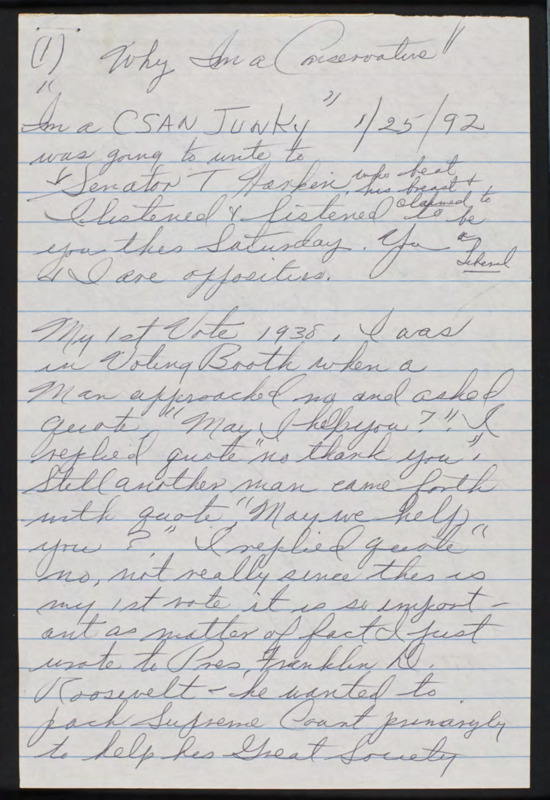 (1) Why Im a Conservative"
"Im a CSAN JUNKY" 1/25/92
was going to write to
Senator T Harkin, who beat
his breast &
claimed to
I listened & listened to be
you this Saturday. You a
Liberal
& I are opposites.
My 1st Vote 1938, I was
in Voting Booth when a
Man approached me and asked
quote "May I help you?". I
replied quote "no thank you".
Still another man came forth
with quote "May we help
you?" I replied quote "
no, not really since this is
my 1st vote it is so import-
ant as matter of fact I just
wrote to Pres. Franklin D.
Roosevelt - he wanted to
pack Supreme Court primarily
to help his Great Society